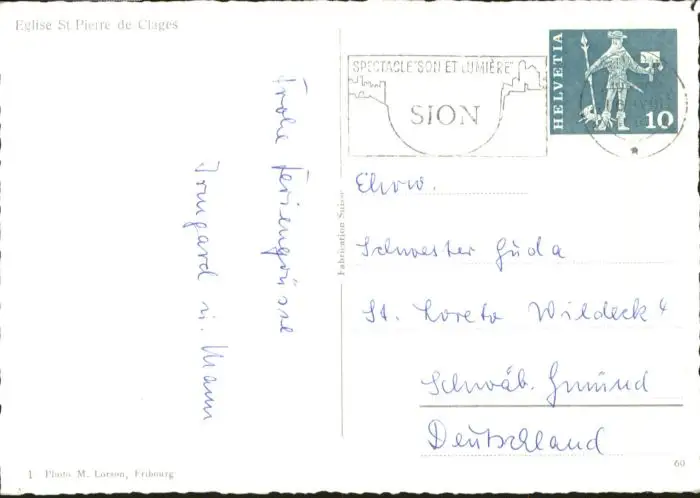 Eglise St Pierre de Clages
SPECTACLE "SON ET LUMIÈRE"
SION
HELVETIA
10
Frohe Feriengrüsse
Irmgard u. Mann
Fabrication Suisse
Ehrw.
Schwester Guda
St. Loreto Wildeck 4
Schwäb. Gmünd
Deutschland
1 Photo M. Lorson, Fribourg
60